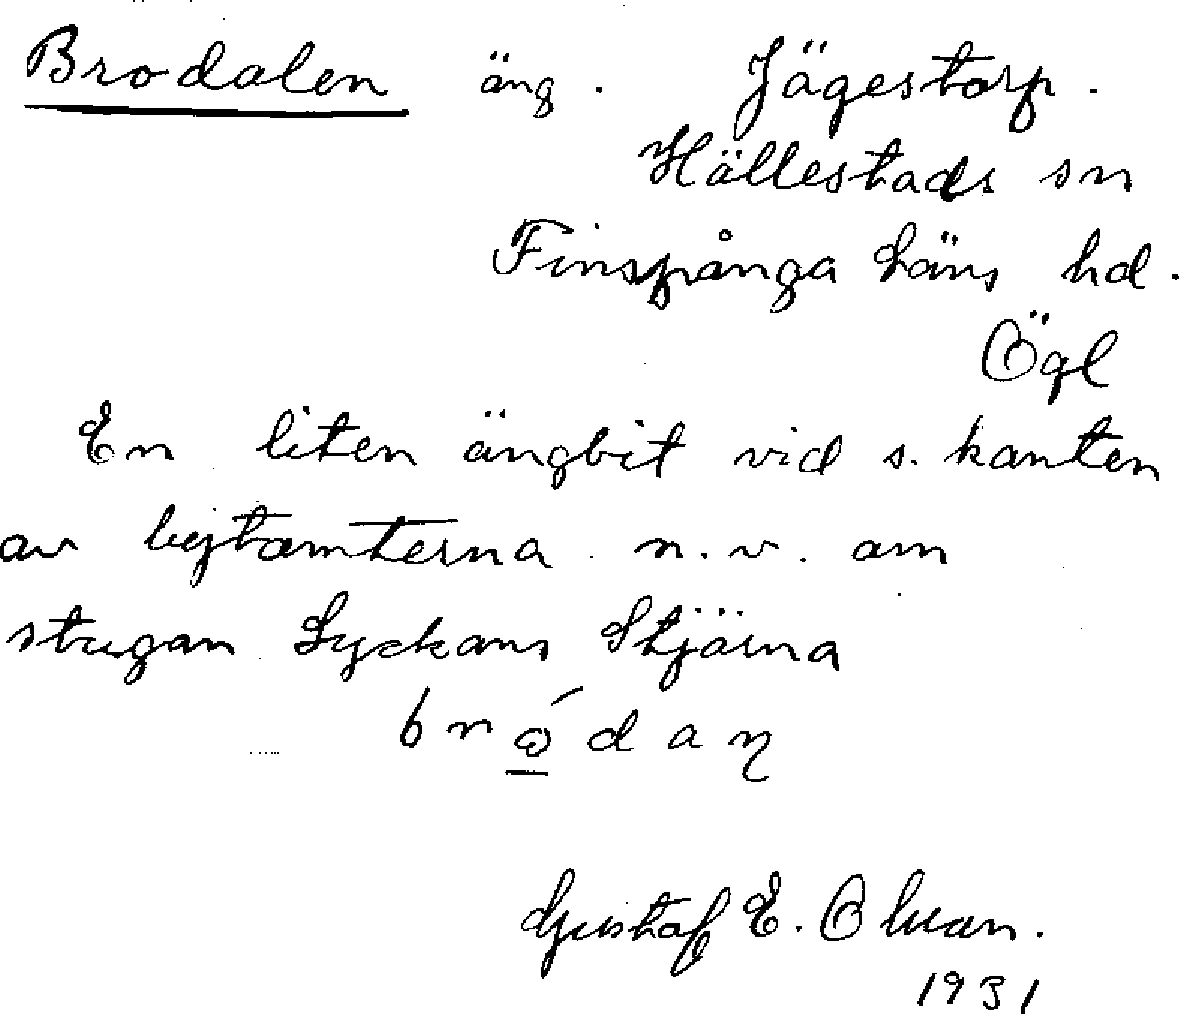 Brodalen äng. Jägestorp.
Hällestads sn
Finspånga Läns hd.
Ögl
En liten ängbit vid s. kanten
av bytomterna n.v. om
stugan Lyckans Stjärna
Gustaf E.
1931